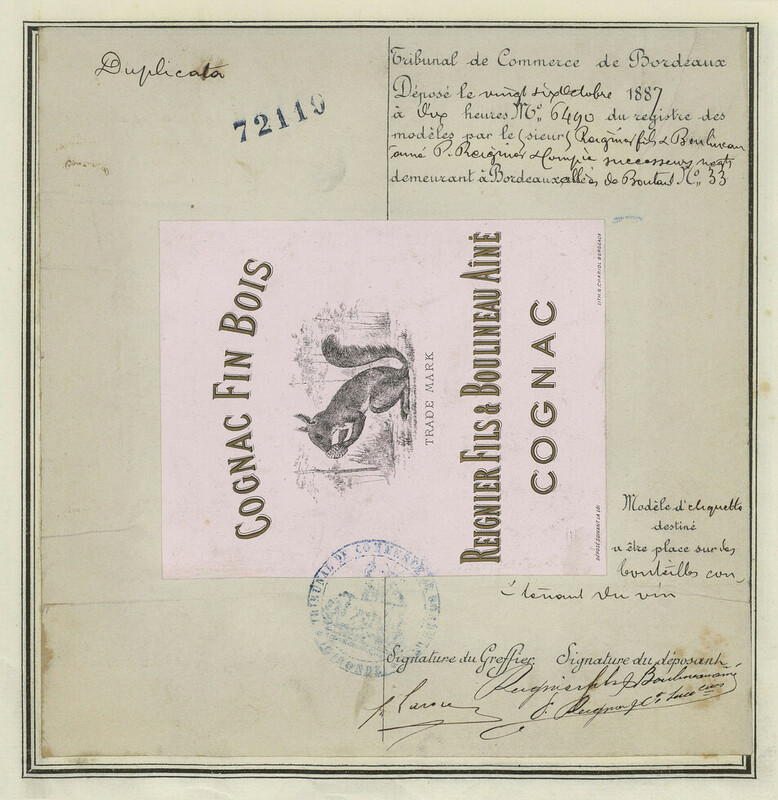 Duplicata
72119
Tribunal de Commerce de Bordeaux
Déposé le vingt six Octobre 1887
à dix heures No. 6490 du registre des
modèles par le (sieur) Reignier fils & Boulineau
ainé P. Reignier & Compie successeurs negts
demeurant à Bordeaux allées de Boutaut No. 33
COGNAC FIN BOIS
TRADE MARK
REIGNIER FILS & BOULINEAU AÎNÉ
COGNAC
LITHO. G. CHARIOL BORDEAUX
DÉPOSÉ SUIVANT LA LOI
Modèle d'etiquette
destiné
a être place sur des
bouteilles con-
tenant du vin
TRIBUNAL DE COMMERCE DE BORDEAUX
GIRONDE
Signature du Greffier. Signature du déposant
Reignier fils & Boulineau ainé
P. Reignier & Ce Succeurs